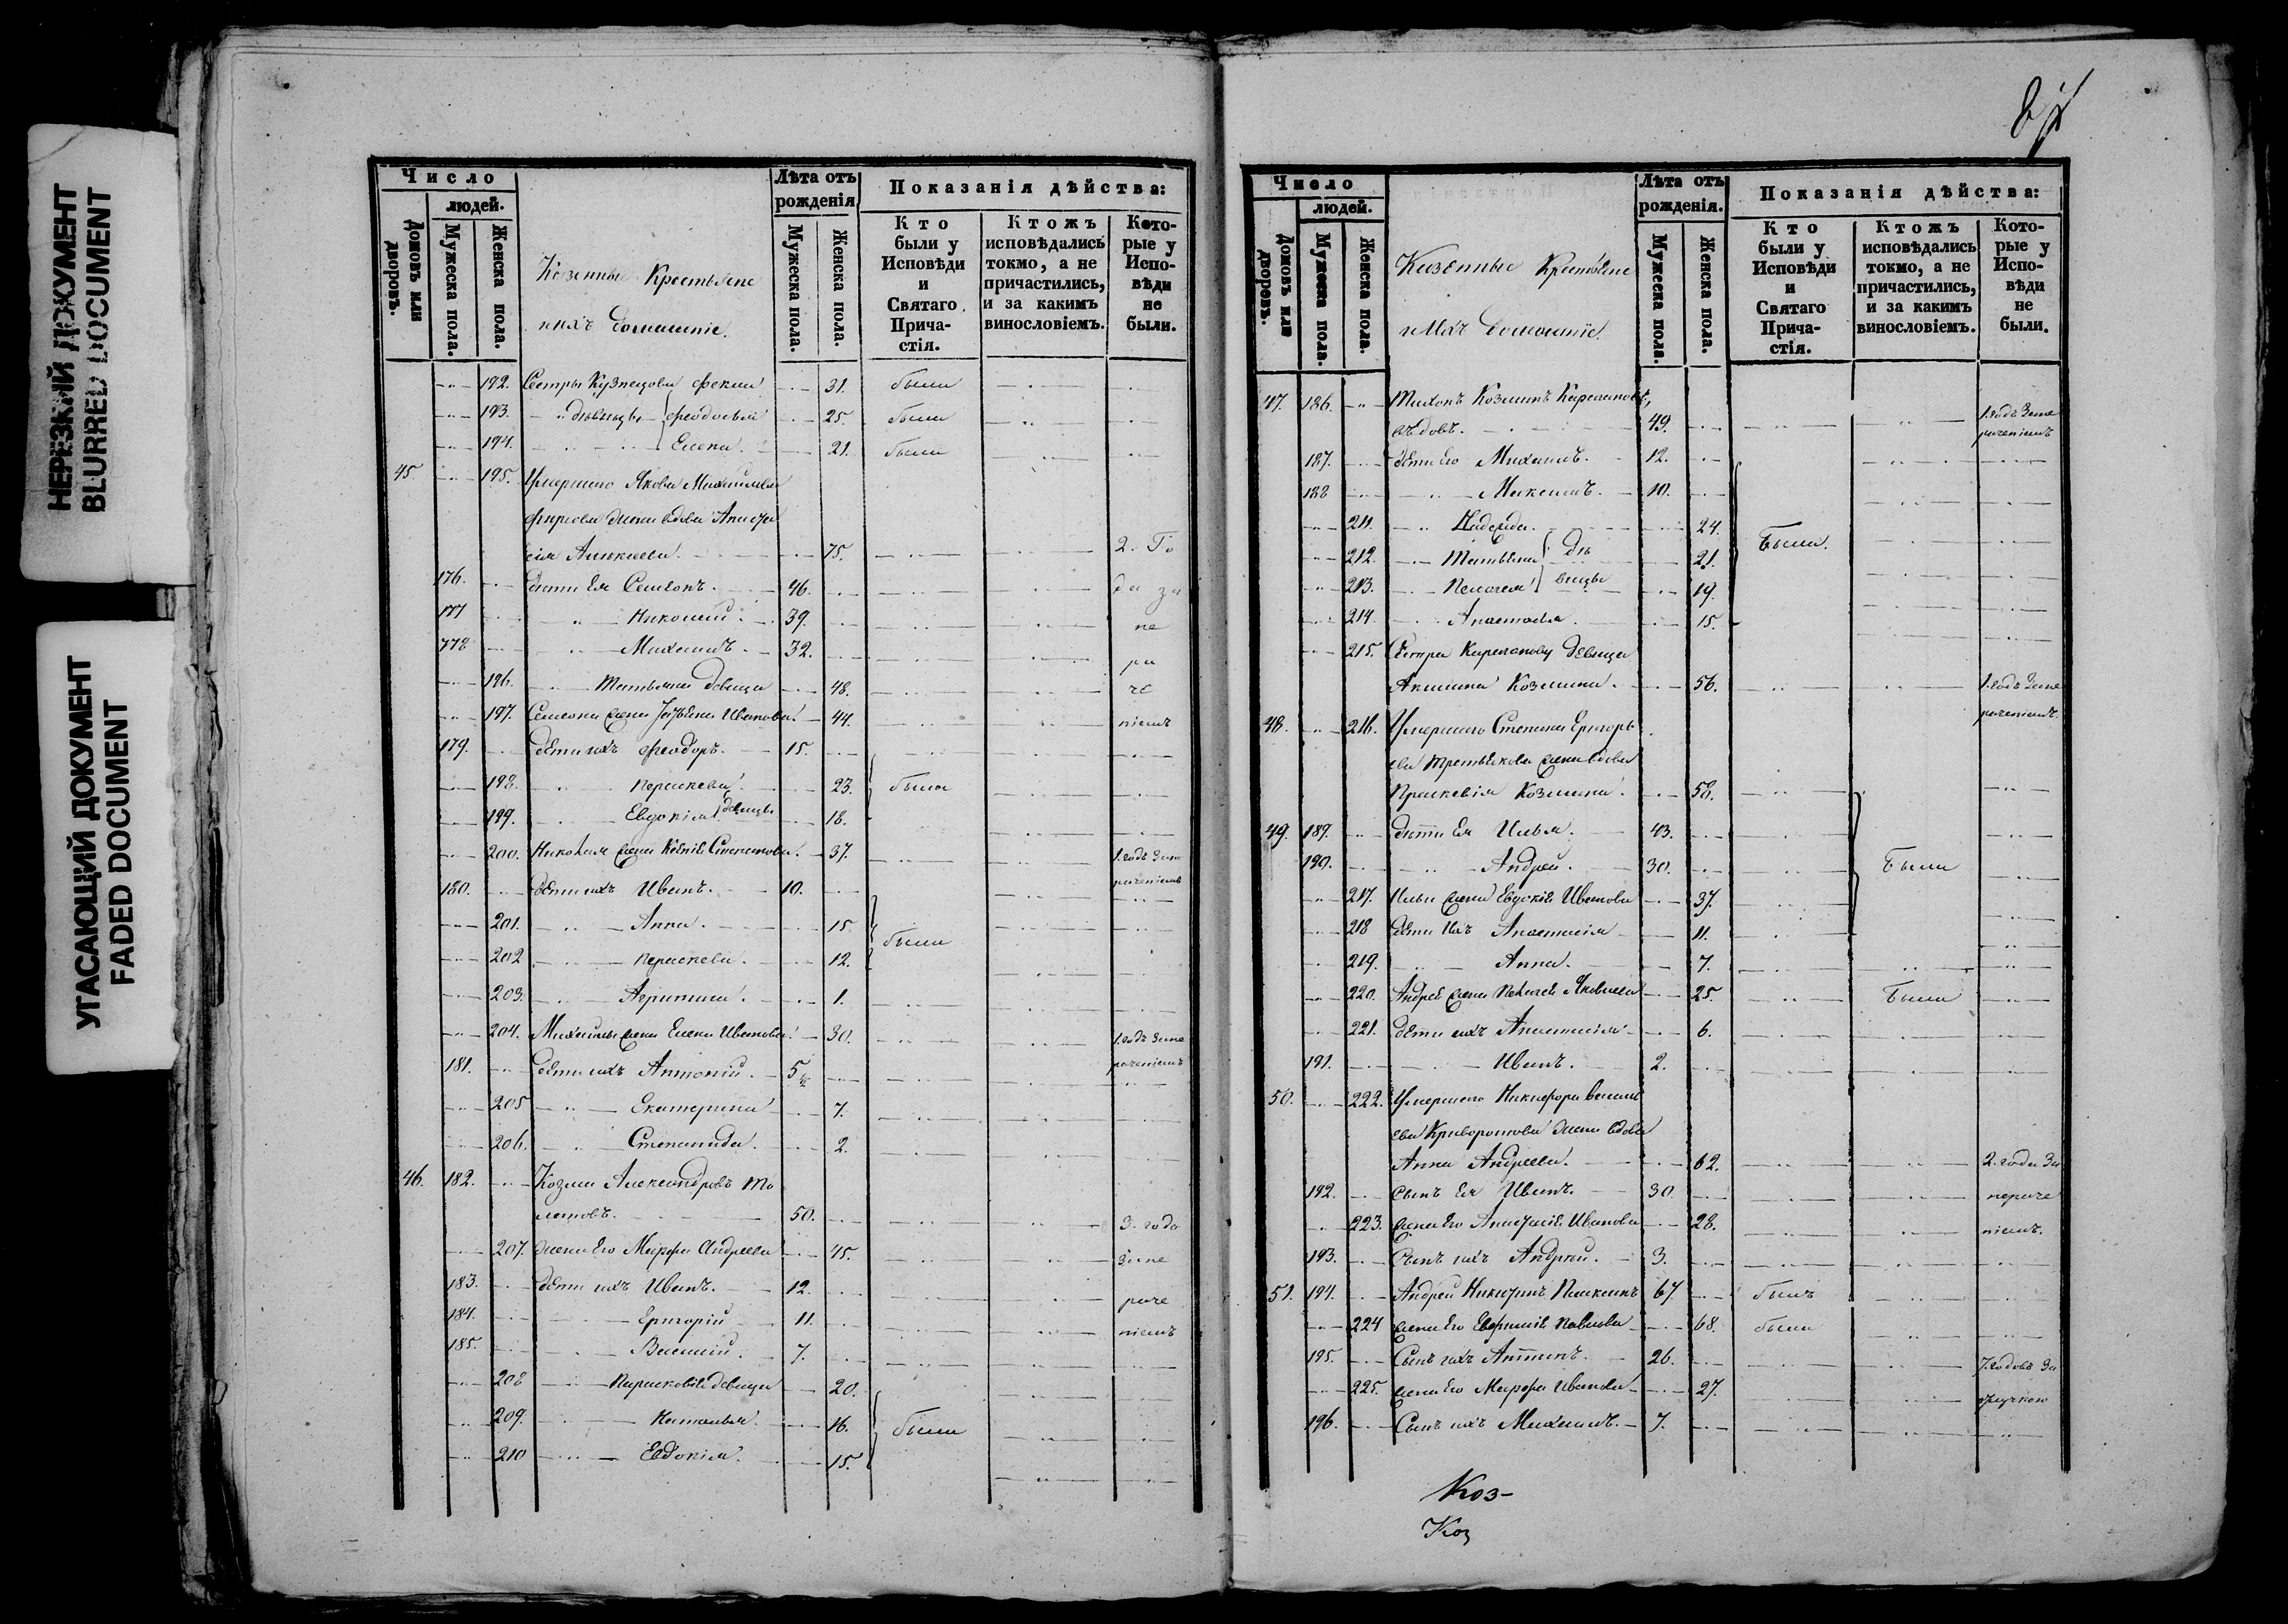 НЕРЕЗКИЙ ДОКУМЕНТ
BLURRED DOCUMENT
УГАСАЮЩИЙ ДОКУМЕНТ
FADED DOCUMENT
Число
людей.
Домовъ или дворовъ.
Мужеска пола.
Женска пола.
Казенные Крестьяне
ихъ домашніе.
Лѣта отъ рожденія
Мужеска пола.
Женска пола.
Показанія дѣйства:
Кто были у Исповѣди и Святаго Прича-стія.
Ктожъ исповѣдались токмо, а не причастились, и за какимъ винословіемъ.
Кото-рые у Испо-вѣди не были.
192. Сестры Кузнецова Фекла 31. была
193. дѣвицы Феодосья 25. была
194. Елена 21. была
45. 195. Умершаго Якова Михайлова
жена вдова
75. 2. Го
176. дѣти Ея Симеонъ. 46. да за
177 Николай. 39. не
178 Михаилъ. 32. ра
196. Татьяна девица 48. че
197. Симеона жена Ивановна. 44. ніемъ
179. Дѣти ихъ Феодоръ. 15.
198. Параскева 23. были
199. Евдокія девицы 18.
200. Николая жена Степанова. 37. 1. годъ зане
180. Дѣти ихъ Иванъ. 10. раченіемъ
201. Анна. 15. были
202 Параскева. 12.
203. Агрипина. 1.
204. Михайлы жена Елена Иванова. 30. 1. годъ зане
181. Дѣти ихъ Антоній. 5 раченіемъ
205 Екатерина 7.
206. Степанида. 2.
46. 182. Козма Александровъ
50. 3. года
207. жена Его Марфа Андреева 45. зане
183. Дѣти ихъ Иванъ. 12. раче
184. Григорій 11. ніемъ
185. Василій. 7.
208 Парасковія девица 20.
209. Наталья. 16. были
210 Евдокія. 15.
Число
людей.
Домовъ или дворовъ.
Мужеска пола.
Женска пола.
Казенные Крестьяне
ихъ домашніе.
Лѣта отъ рожденія.
Мужеска пола.
Женска пола.
Показанія дѣйства:
Кто были у Исповѣди и Святаго Прича-стія.
Ктожъ исповѣдались токмо, а не причастились, и за какимъ винословіемъ.
Кото-рые у Испо-вѣди не были.
47. 186. Тихонъ Козминъ
вдовъ. 49. 1. годъ зане раченіемъ
187. дѣти Его Михаилъ. 12.
188 Максимъ. 10.
211. Надежда. 24. Были.
212. Татьяна дѣ 21.
213. Пелагея вицы 19.
214. Анастасья 15.
215. Сестра девица
Акилина Козмина. 56. 1. годъ зане
раченіемъ.
48. 216. Умершаго Степана Григорь
ева Третьякова жена вдова
Праскевія Козмина. 58.
49. 189. дѣти Ея Илья. 43.
190. Андрей. 30. Были
217. Ильи жена Евдокія Иванова 37.
218 Дѣти Ихъ Анастасія 11.
219. Анна. 7.
220. Андрея жена Пелагея Яковлева 25. Была
221. дѣти ихъ Анастасія 6.
191. Иванъ. 2.
50. 222. Умершаго Никифора Василь
ева жена вдова
Анна Андреева. 62. 2. года за
192. Сынъ Ея Иванъ. 30. нераче
223. жена Его Иванова 28. ніемъ.
193. Сынъ ихъ Андрей. 3.
51. 194. Андрей Никитинъ 67. былъ
224 жена Его Павлова 68. была
195. Сынъ ихъ 26. 7. годовъ за
225. жена Его Марфа Иванова 27. отлучкою
196. Сынъ ихъ Михаилъ. 7.
Коз-
Коз